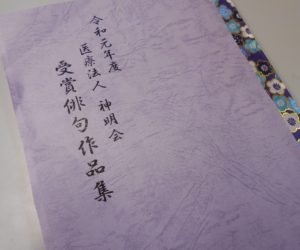 令和元年度
医療法人 神明会
受賞俳句作品集